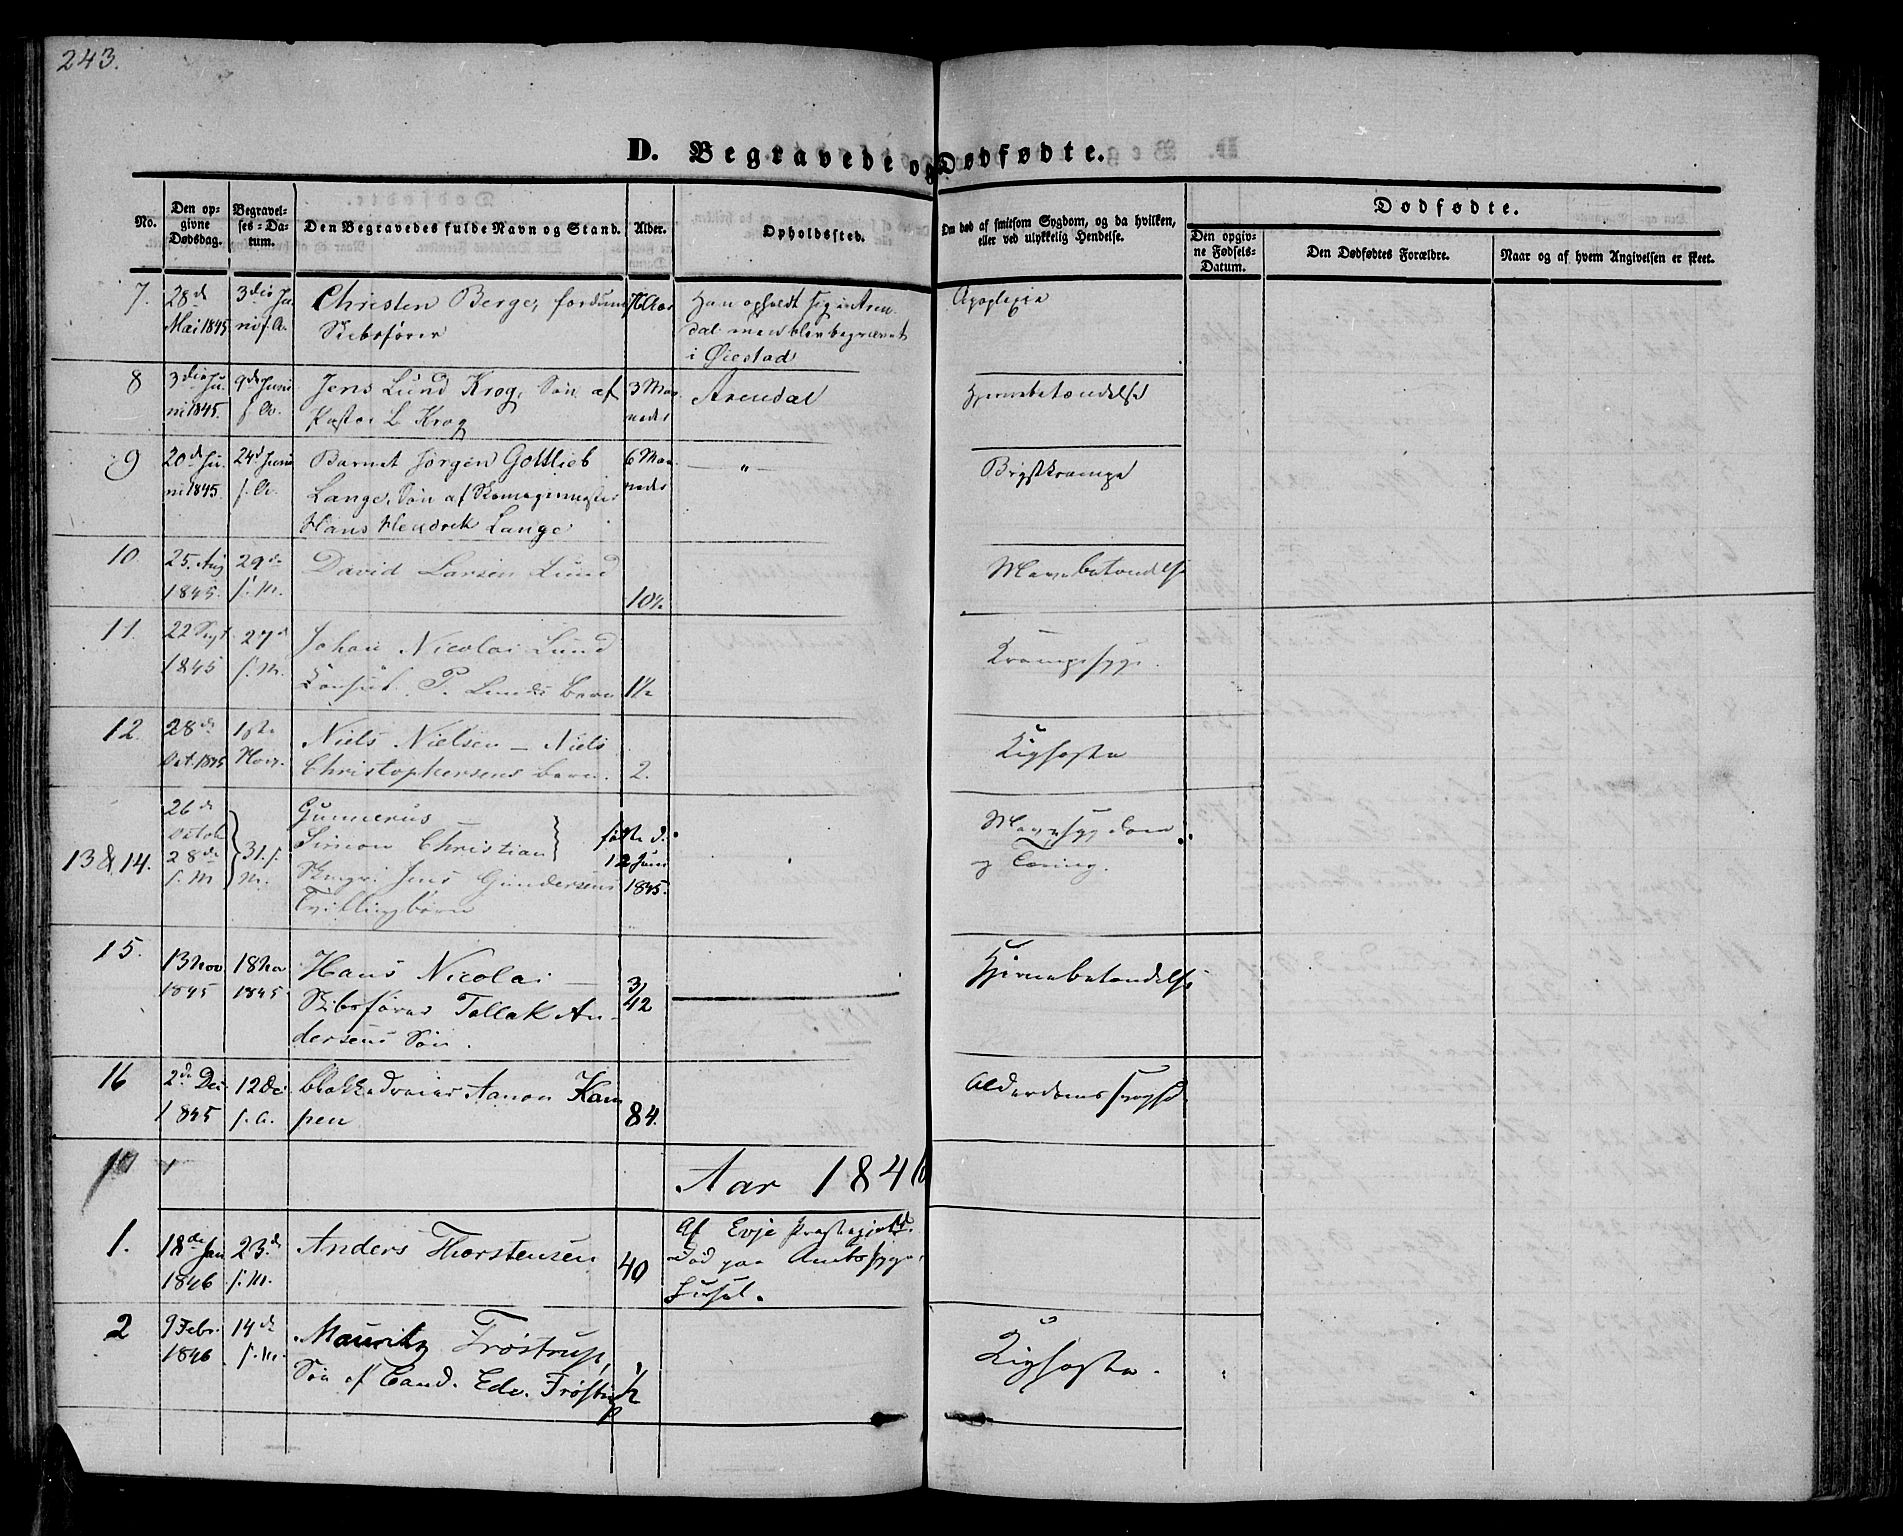 243.
D. Begravede og Dødfødte.
No.
Den opgivne Dødsdag.
Begravelses-Datum.
Den Begravedes fulde Navn og Stand.
Alder.
Opholdssted.
Om død af smitsom Sygdom, og da hvilken,
eller ved ulykkelig Hendelse.
Dødfødte.
Den opgivne Fødsels-Datum.
Den Dødfødtes Forældre.
Naar og af hvem Angivelsen er skeet.
7. 28d Mai 1845 3die Juni f. A.
Christen Berge, fordum
Skibsfører
Han opholdt sig i Arendal men blev begravet
i Øiestad
Apoplexia
8 3die Juni 1845. 9d Juni f. A.
Jens Lund Krog, Søn af
Pastor L. Krog
3 Maaneder
Arendal
Hjernebetændelse
9 20d Juni 1845. 24d Juni f. A.
Barnet Jørgen Gottlieb
Lange, Søn af Skomagermester
Hans Hendrik Lange
6 Maaneder
— „ —
Brystkrampe
10. 25. Aug 1845. 29de f. M.
David Larsen Lund
10½
Mavebetændelse
11. 22 Sept 1845 27d f. M.
Johan Nicolai Lund
Consul P. Lunds Barn
1½
Krampesyge.
12. 28de Oct. 1845 1ste Novr.
Niels Nielsen — Niels
Christophersens Barn.
2.
Kighoste
13 & 14. 26de Octob 28de f. M 31. f. M.
Gunnerus
Simon Christian
Jens Gundersens
Tvillingbørn
fødte d. 12 Juni 1845.
Mavesygdom
og Tæring.
15. 13 Nov 1845 18 Nov 1845.
Hans Nicolai —
Skibsfører Tallak Andersens Søn.
3/42
Hjernebetændelse
16 2de Dec 1845 12 Dec f. A.
Blokkedreier Aanon Kampen
84.
Alderdomssvaghed
Aar 1846
1. 18de Jan 1846 23.d f. M.
Anders Thorstensen
40
Af Evje Præstegjeld.
Død paa Amtssygehuset.
2 9 Febr. 1846 14de f. M.
Mauritz Frøstrup,
Søn af Cand. Edv. Frøstrup
½
Kighoste.